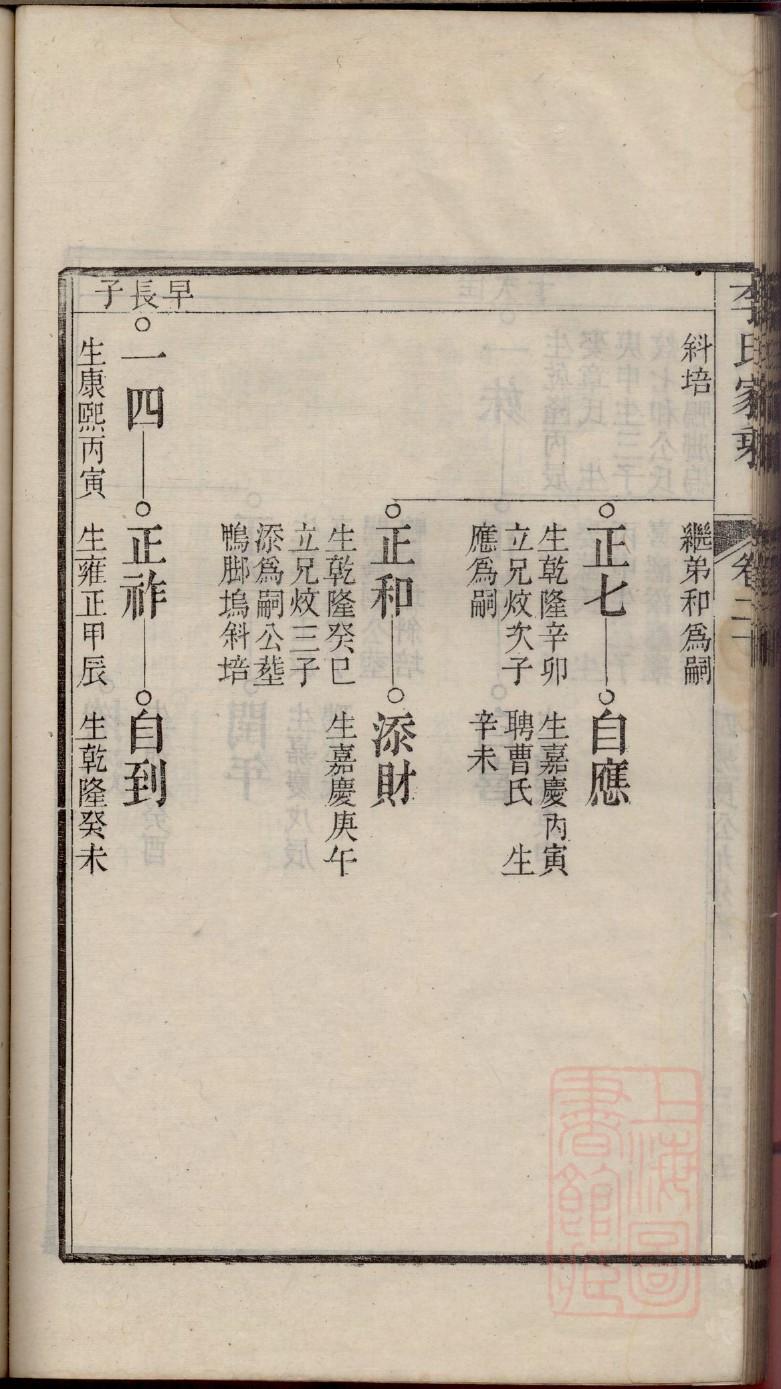 李氏家乘
卷二十
斜培
繼弟和爲嗣
正七
自應
生乾隆辛卯
立兄炆次子
應爲嗣
生嘉慶丙寅
聘曹氏 生
辛未
正和
添財
生乾隆癸巳
立兄炆三子
添爲嗣公塟
鴨脚塢斜培
生嘉慶庚午
早長子
一四
正祚
自到
生康熙丙寅
生雍正甲辰
生乾隆癸未
上海圖
書館藏